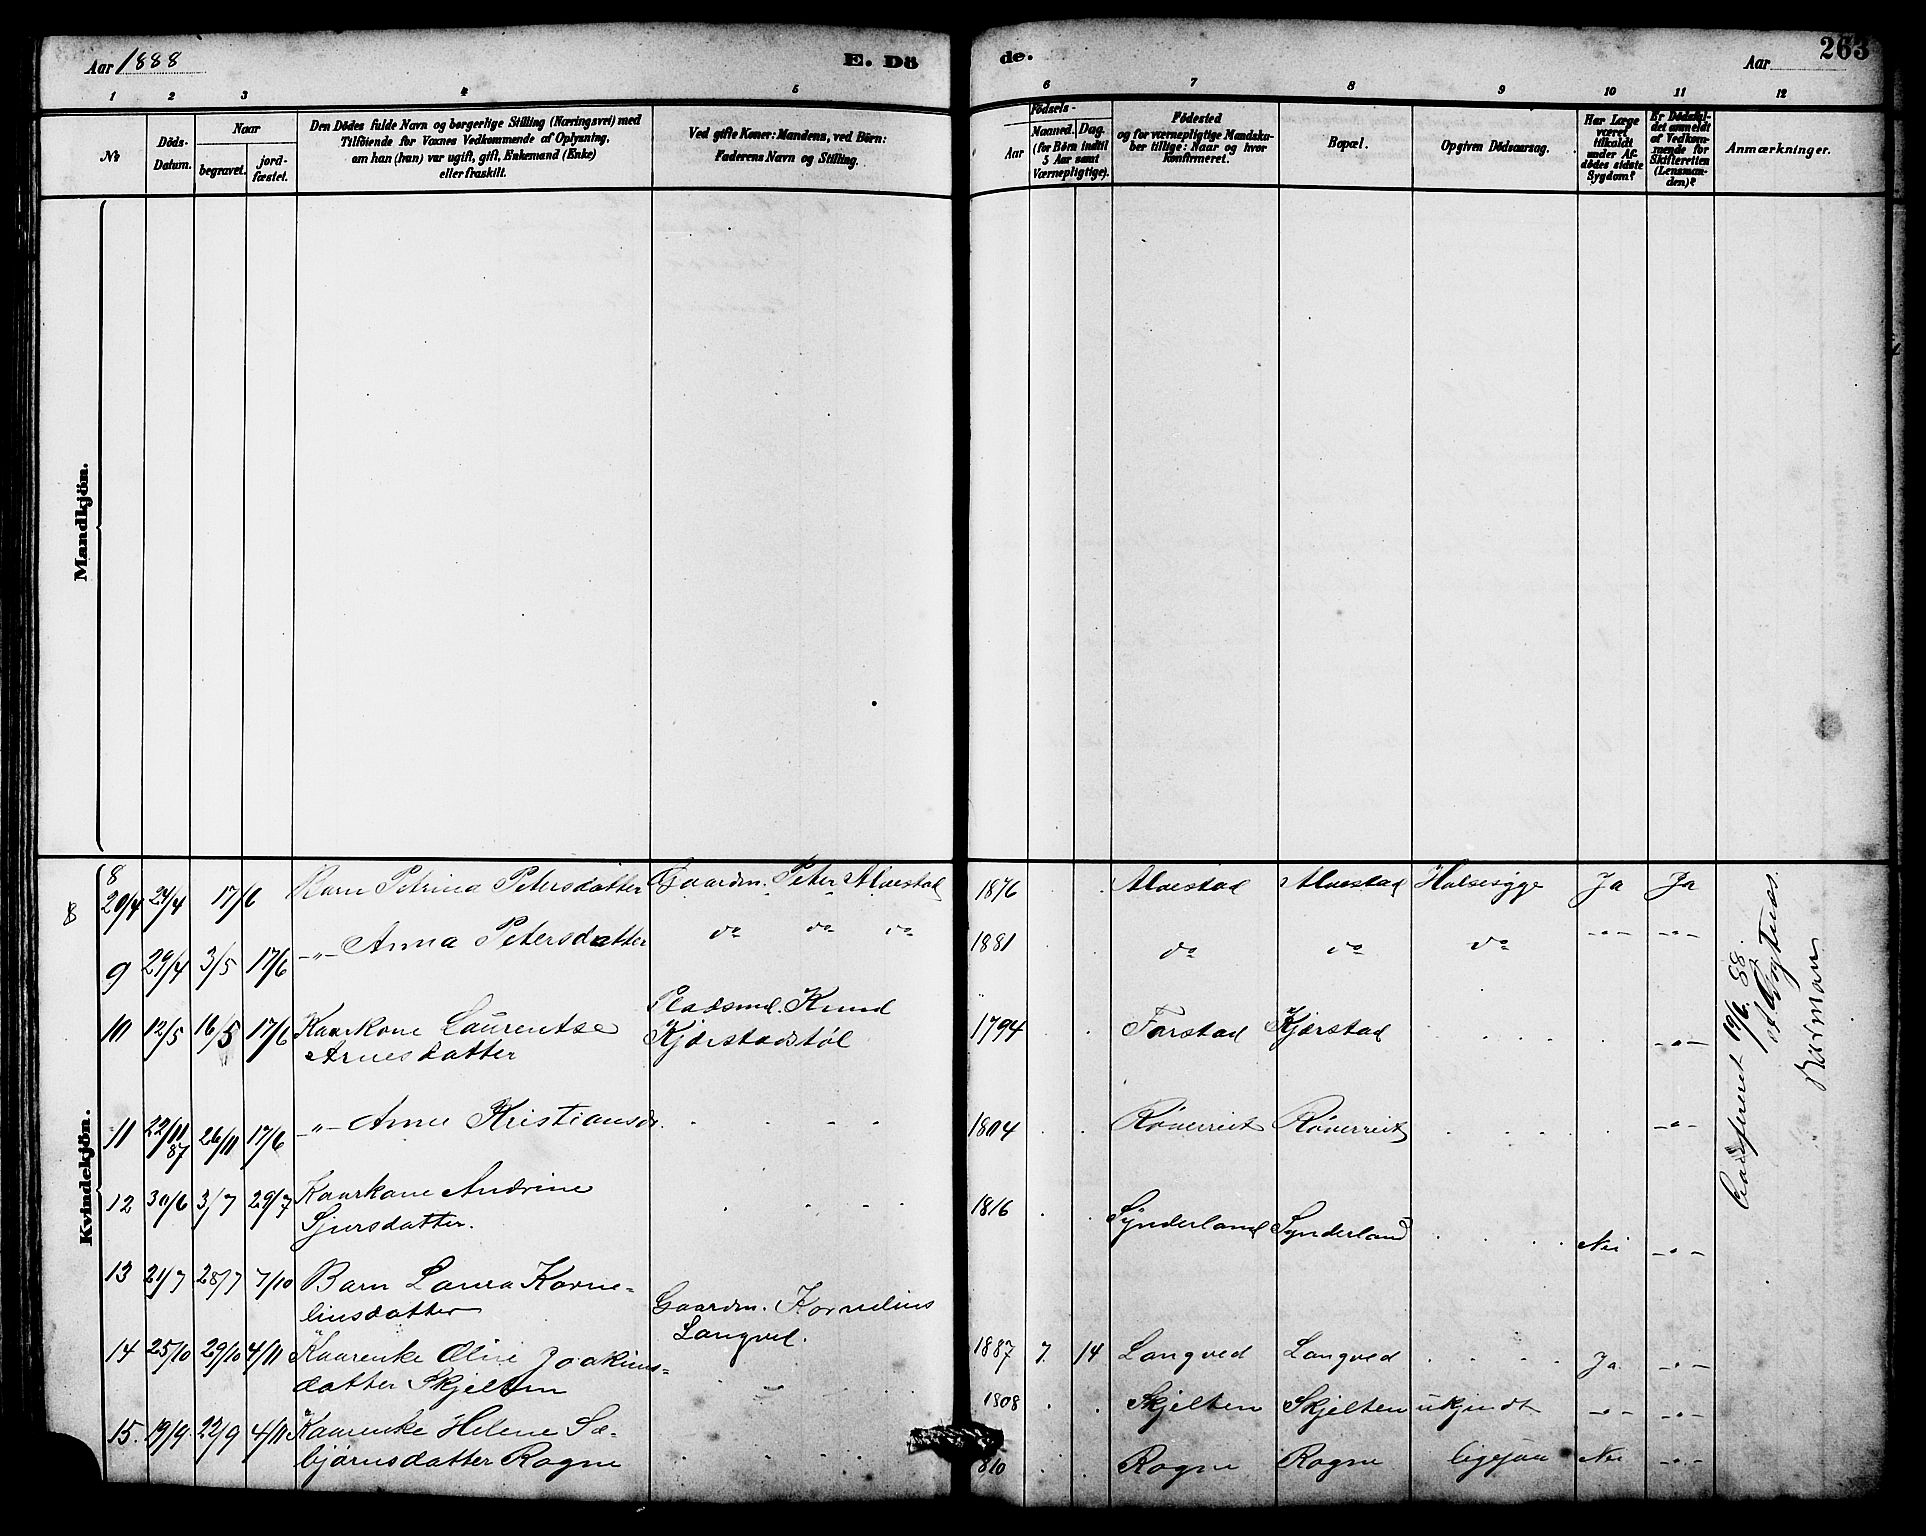 Aar 1888
E. Dö
de.
Aar
263
1 2 3 4 5 6 7 8 9 10 11 12
No
Döds-
Datum.
Naar
begravet.
jord-
fæstet.
Den Dödes fulde Navn og borgerlige Stilling (Næringsvei) med
Tilföiende for Voxnes Vedkommende af Oplysning,
om han (hun) var ugift, gift, Enkemand (Enke)
eller fraskilt.
Ved gifte Koner: Mandens, ved Börn:
Faderens Navn og Stilling.
Födsels-
Aar
Maaned. Dag.
(for Börn indtil
5 Aar samt
Værnepligtige).
Födested
og for værnepligtige Mandska-
ber tillige: Naar og hvor
Konfirmeret.
Bopæl.
Opgiven Dödsaarsag.
Har Læge
været
tilkaldt
under Af-
dödes sidste
Sygdom?
Er Dödsfal-
det anmeldt
af Vedkom-
mende for
Skifteretten
(Lensman-
den)?
Anmærkninger.
Mandkjön.
Kvindekjön.
8
20/4 24/4 17/6 Barn Petrina Petersdatter Gaardm. Peter Alvestad 1876 Alvestad Alvestad Halsesyge Ja Ja
9 29/4 3/5 17/6 -"- Anna Petersdatter do do do 1881 do do do -"- -"-
10 12/5 16/5 17/6 Kaarkone Laurentse Pladsmd. Knud 1794 Farstad Kjærstad -"-
Arnesdatter Kjærstadstøl
11 22/11 87 26/11 17/6 -"- Anne Kristiansdr. 1804 -"-
12 30/6 3/7 29/7 Kaarkone Andrine 1816 Synderland Synderland Nei -"-
Sjursdatter.
13 21/7 28/7 7/10 Barn Laura Korne-
liusdatter Gaardm. Kornelius
Langved. 1887 7. 14 Langved Langved Ja -"-
14 25/10 29/10 4/11 Kaarenke Oline Joakims-
datter Skjelten 1808 Skjelten Skjelten ukjendt -"- -"-
15. 19/9 22/9 4/11 Kaarenke Helene Sæ-
bjørnsdatter Rogne 810 Rogne Rogne ligesaa Nei -"-
19/6. 88.